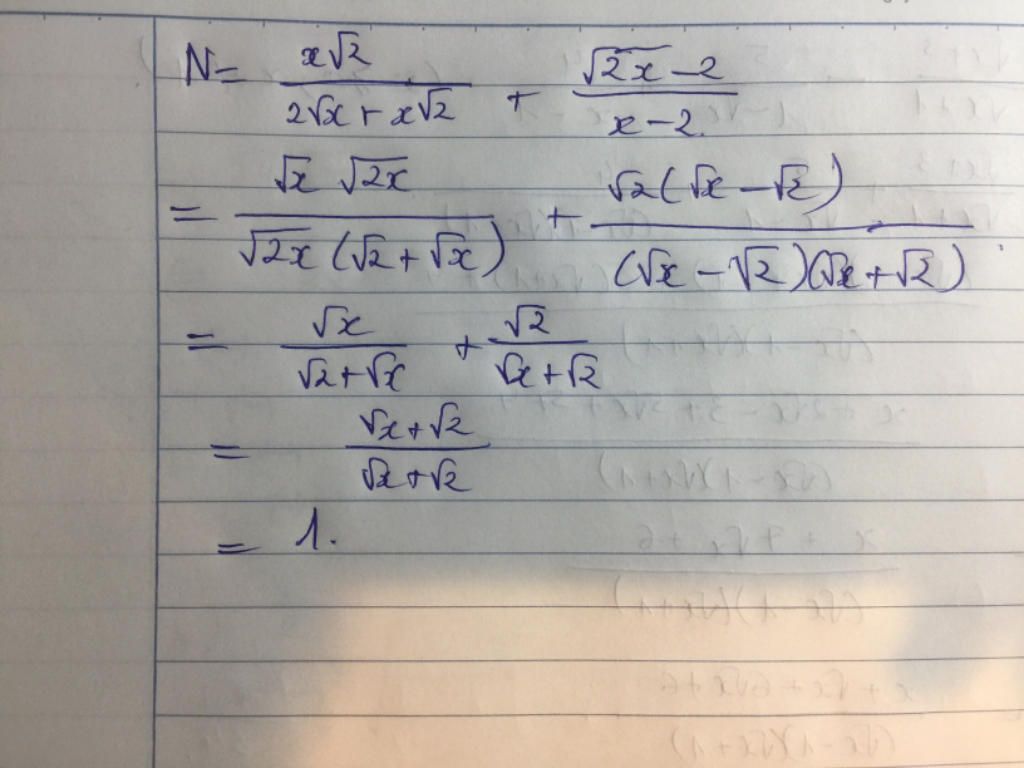 N = \frac{x\sqrt{2}}{2\sqrt{x} + x\sqrt{2}} + \frac{\sqrt{2x} - 2}{x - 2}
= \frac{\sqrt{x} \sqrt{2x}}{\sqrt{2x}(\sqrt{2} + \sqrt{x})} + \frac{\sqrt{2}(\sqrt{x} - \sqrt{2})}{(\sqrt{x} - \sqrt{2})(\sqrt{x} + \sqrt{2})}
= \frac{\sqrt{x}}{\sqrt{2} + \sqrt{x}} + \frac{\sqrt{2}}{\sqrt{x} + \sqrt{2}}
= \frac{\sqrt{x} + \sqrt{2}}{\sqrt{x} + \sqrt{2}}
= 1.